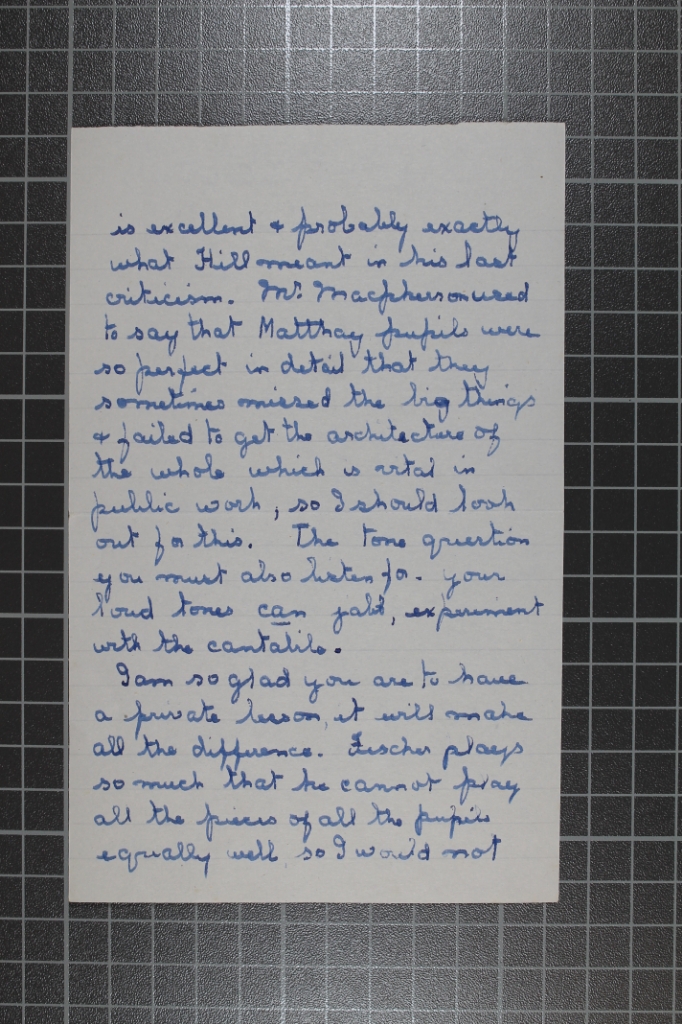 is excellent & probably exactly
what Hill meant in his last
criticism. Mr. Macpherson used
to say that Matthay pupils were
so perfect in detail that they
sometimes missed the big things
& failed to get the architecture of
the whole which is vital in
public work, so I should look
out for this. The tone question
you must also listen for. Your
loud tones can jabb, experiment
with the cantabile.
I am so glad you are to have
a private lesson, it will make
all the difference. Fischer plays
so much that he cannot play
all the pieces of all the pupils
equally well so I would not